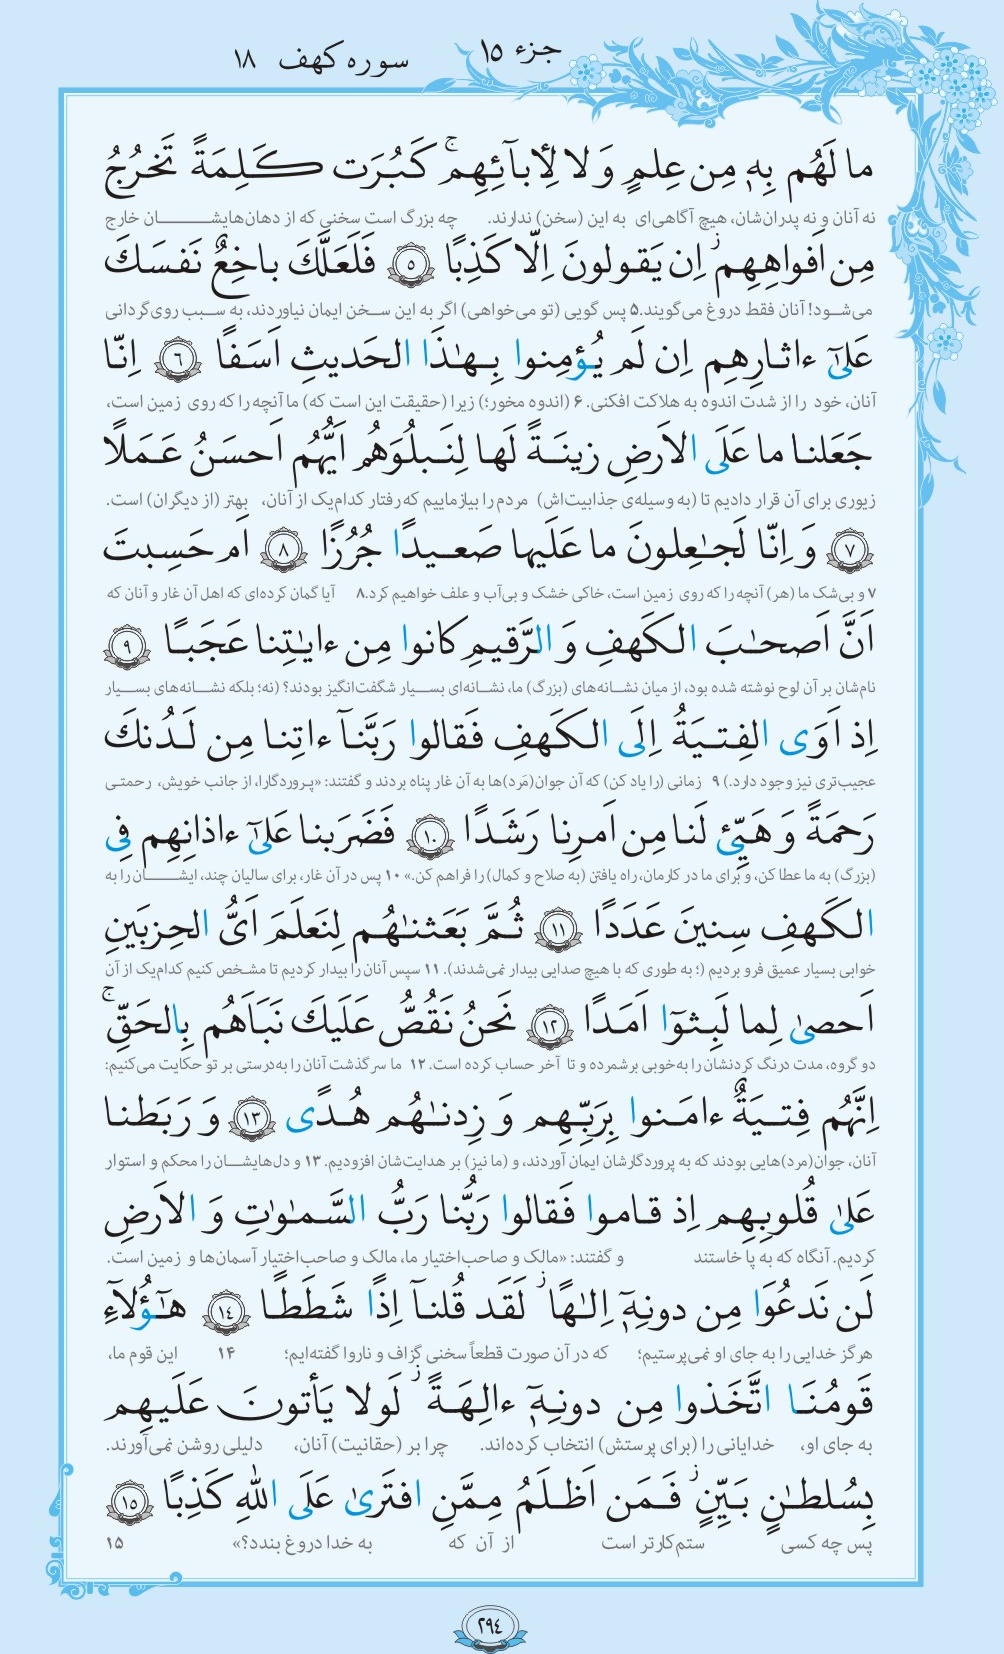 جزء ۱۵
سوره کهف ۱۸
ما لَهُم بِهٖ مِن عِلمٍ وَ لا لِأبآئِهِم ۚ كَبُرَت كَلِمَةً تَخرُجُ
نه آنان و نه پدران‌شان، هیچ آگاهی‌ای به این (سخن) ندارند. چه بزرگ است سخنی که از دهان‌هایشان خارج
مِن اَفواهِهِم ۗ اِن يَقولونَ اِلّا كَذِبًا ﴿٥﴾ فَلَعَلَّكَ باخِعٌ نَفسَكَ
می‌شود! آنان فقط دروغ می‌گویند.۵ پس گویی (تو می‌خواهی) اگر به این سخن ایمان نیاوردند، به سبب روی‌گردانی
عَلىٰٓ ءاثارِهِم اِن لَم يُؤمِنوا بِهٰذَا الحَديثِ اَسَفًا ﴿٦﴾ اِنّا
آنان، خود را از شدت اندوه به هلاکت افکنی. ۶ (اندوه مخور؛) زیرا (حقیقت این است که) ما آنچه را که روی زمین است،
جَعَلنا ما عَلَى الاَرضِ زينَةً لَها لِنَبلُوَهُم اَيُّهُم اَحسَنُ عَمَلًا
زیوری برای آن قرار دادیم تا (به وسیله‌ی جذابیت‌اش) مردم را بیازماییم که رفتار کدام‌یک از آنان، بهتر (از دیگران) است.
﴿٧﴾ وَ اِنّا لَجٰعِلونَ ما عَلَيها صَعيدًا جُرُزًا ﴿٨﴾ اَم حَسِبتَ
۷ و بی‌شک ما (هر) آنچه را که روی زمین است، خاکی خشک و بی‌آب و علف خواهیم کرد.۸ آیا گمان کرده‌ای که اهل آن غار و آنان که
اَنَّ اَصحٰبَ الكَهفِ وَ الرَّقيمِ كانوا مِن ءايٰتِنا عَجَبًا ﴿٩﴾
نام‌شان بر آن لوح نوشته شده بود، از میان نشانه‌های (بزرگ) ما، نشانه‌ای بسیار شگفت‌انگیز بودند؟ (نه؛ بلکه نشانه‌های بسیار
اِذ اَوَى الفِتيَةُ اِلَى الكَهفِ فَقالوا رَبَّنآ ءاتِنا مِن لَدُنكَ
عجیب‌تری نیز وجود دارد.) ۹ زمانی (را یاد کن) که آن جوان(مَرد)ها به آن غار پناه بردند و گفتند: «پروردگارا، از جانب خویش، رحمتی
رَحمَةً وَ هَيِّئ لَنا مِن اَمرِنا رَشَدًا ﴿١٠﴾ فَضَرَبنا عَلىٰٓ ءاذانِهِم فِى
(بزرگ) به ما عطا کن، و برای ما در کارمان، راه یافتن (به صلاح و کمال) را فراهم کن.» ۱۰ پس در آن غار، برای سالیان چند، ایشان را به
الكَهفِ سِنينَ عَدَدًا ﴿١١﴾ ثُمَّ بَعَثنٰهُم لِنَعلَمَ اَىُّ الحِزبَينِ
خوابی بسیار عمیق فرو بردیم (؛ به طوری که با هیچ صدایی بیدار نمی‌شدند). ۱۱ سپس آنان را بیدار کردیم تا مشخص کنیم کدام‌یک از آن
اَحصىٰ لِما لَبِثوٓا اَمَدًا ﴿١٢﴾ نَحنُ نَقُصُّ عَلَيكَ نَبَاَهُم بِالحَقِّ ۚ
دو گروه، مدت درنگ کردنشان را به‌خوبی برشمرده و تا آخر حساب کرده است. ۱۲ ما سرگذشت آنان را به‌درستی بر تو حکایت می‌کنیم:
اِنَّهُم فِتيَةٌ ءامَنوا بِرَبِّهِم وَ زِدنٰهُم هُدًى ﴿١٣﴾ وَ رَبَطنا
آنان، جوان(مرد)هایی بودند که به پروردگارشان ایمان آوردند، و (ما نیز) بر هدایت‌شان افزودیم. ۱۳ و دل‌هایشان را محکم و استوار
عَلىٰ قُلوبِهِم اِذ قاموا فَقالوا رَبُّنا رَبُّ السَّمٰوٰتِ وَ الاَرضِ
کردیم. آنگاه که به پا خاستند و گفتند: «مالک و صاحب‌اختیار ما، مالک و صاحب‌اختیار آسمان‌ها و زمین است.
لَن نَدعُوَا مِن دونِهٖٓ اِلٰهًا ۖ لَقَد قُلنآ اِذًا شَطَطًا ﴿١٤﴾ هٰٓؤُلآءِ
هرگز خدایی را به جای او نمی‌پرستیم؛ که در آن صورت قطعاً سخنی گزاف و ناروا گفته‌ایم؛ ۱۴ این قوم ما،
قَومُنَا اتَّخَذوا مِن دونِهٖٓ ءالِهَةً ۖ لَولا يَأتونَ عَلَيهِم
به جای او، خدایانی را (برای پرستش) انتخاب کرده‌اند. چرا بر (حقانیت) آنان، دلیلی روشن نمی‌آورند.
بِسُلطٰنٍ بَيِّنٍ ۖ فَمَن اَظلَمُ مِمَّنِ افتَرىٰ عَلَى اللهِ كَذِبًا ﴿١٥﴾
پس چه کسی ستم‌کارتر است از آن که به خدا دروغ بندد؟» ۱۵
٢٩٤